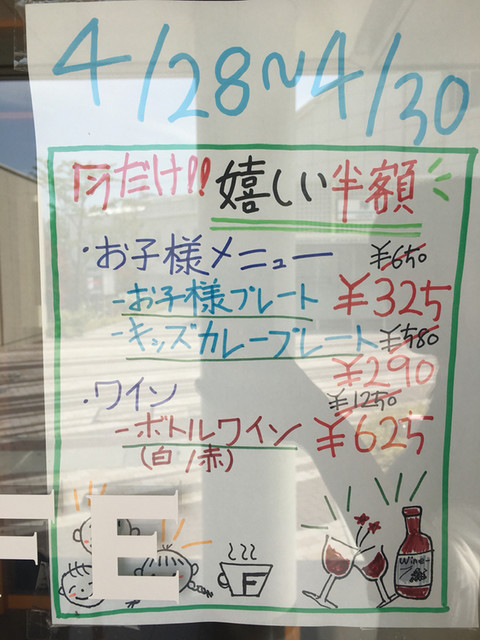 4/28~4/30
今だけ!! 嬉しい半額
・お子様メニュー ¥650
-お子様プレート ¥325
-キッズカレープレート ¥580
¥290
・ワイン ¥1250
-ボトルワイン ¥625
(白/赤)
FE
F
Wine